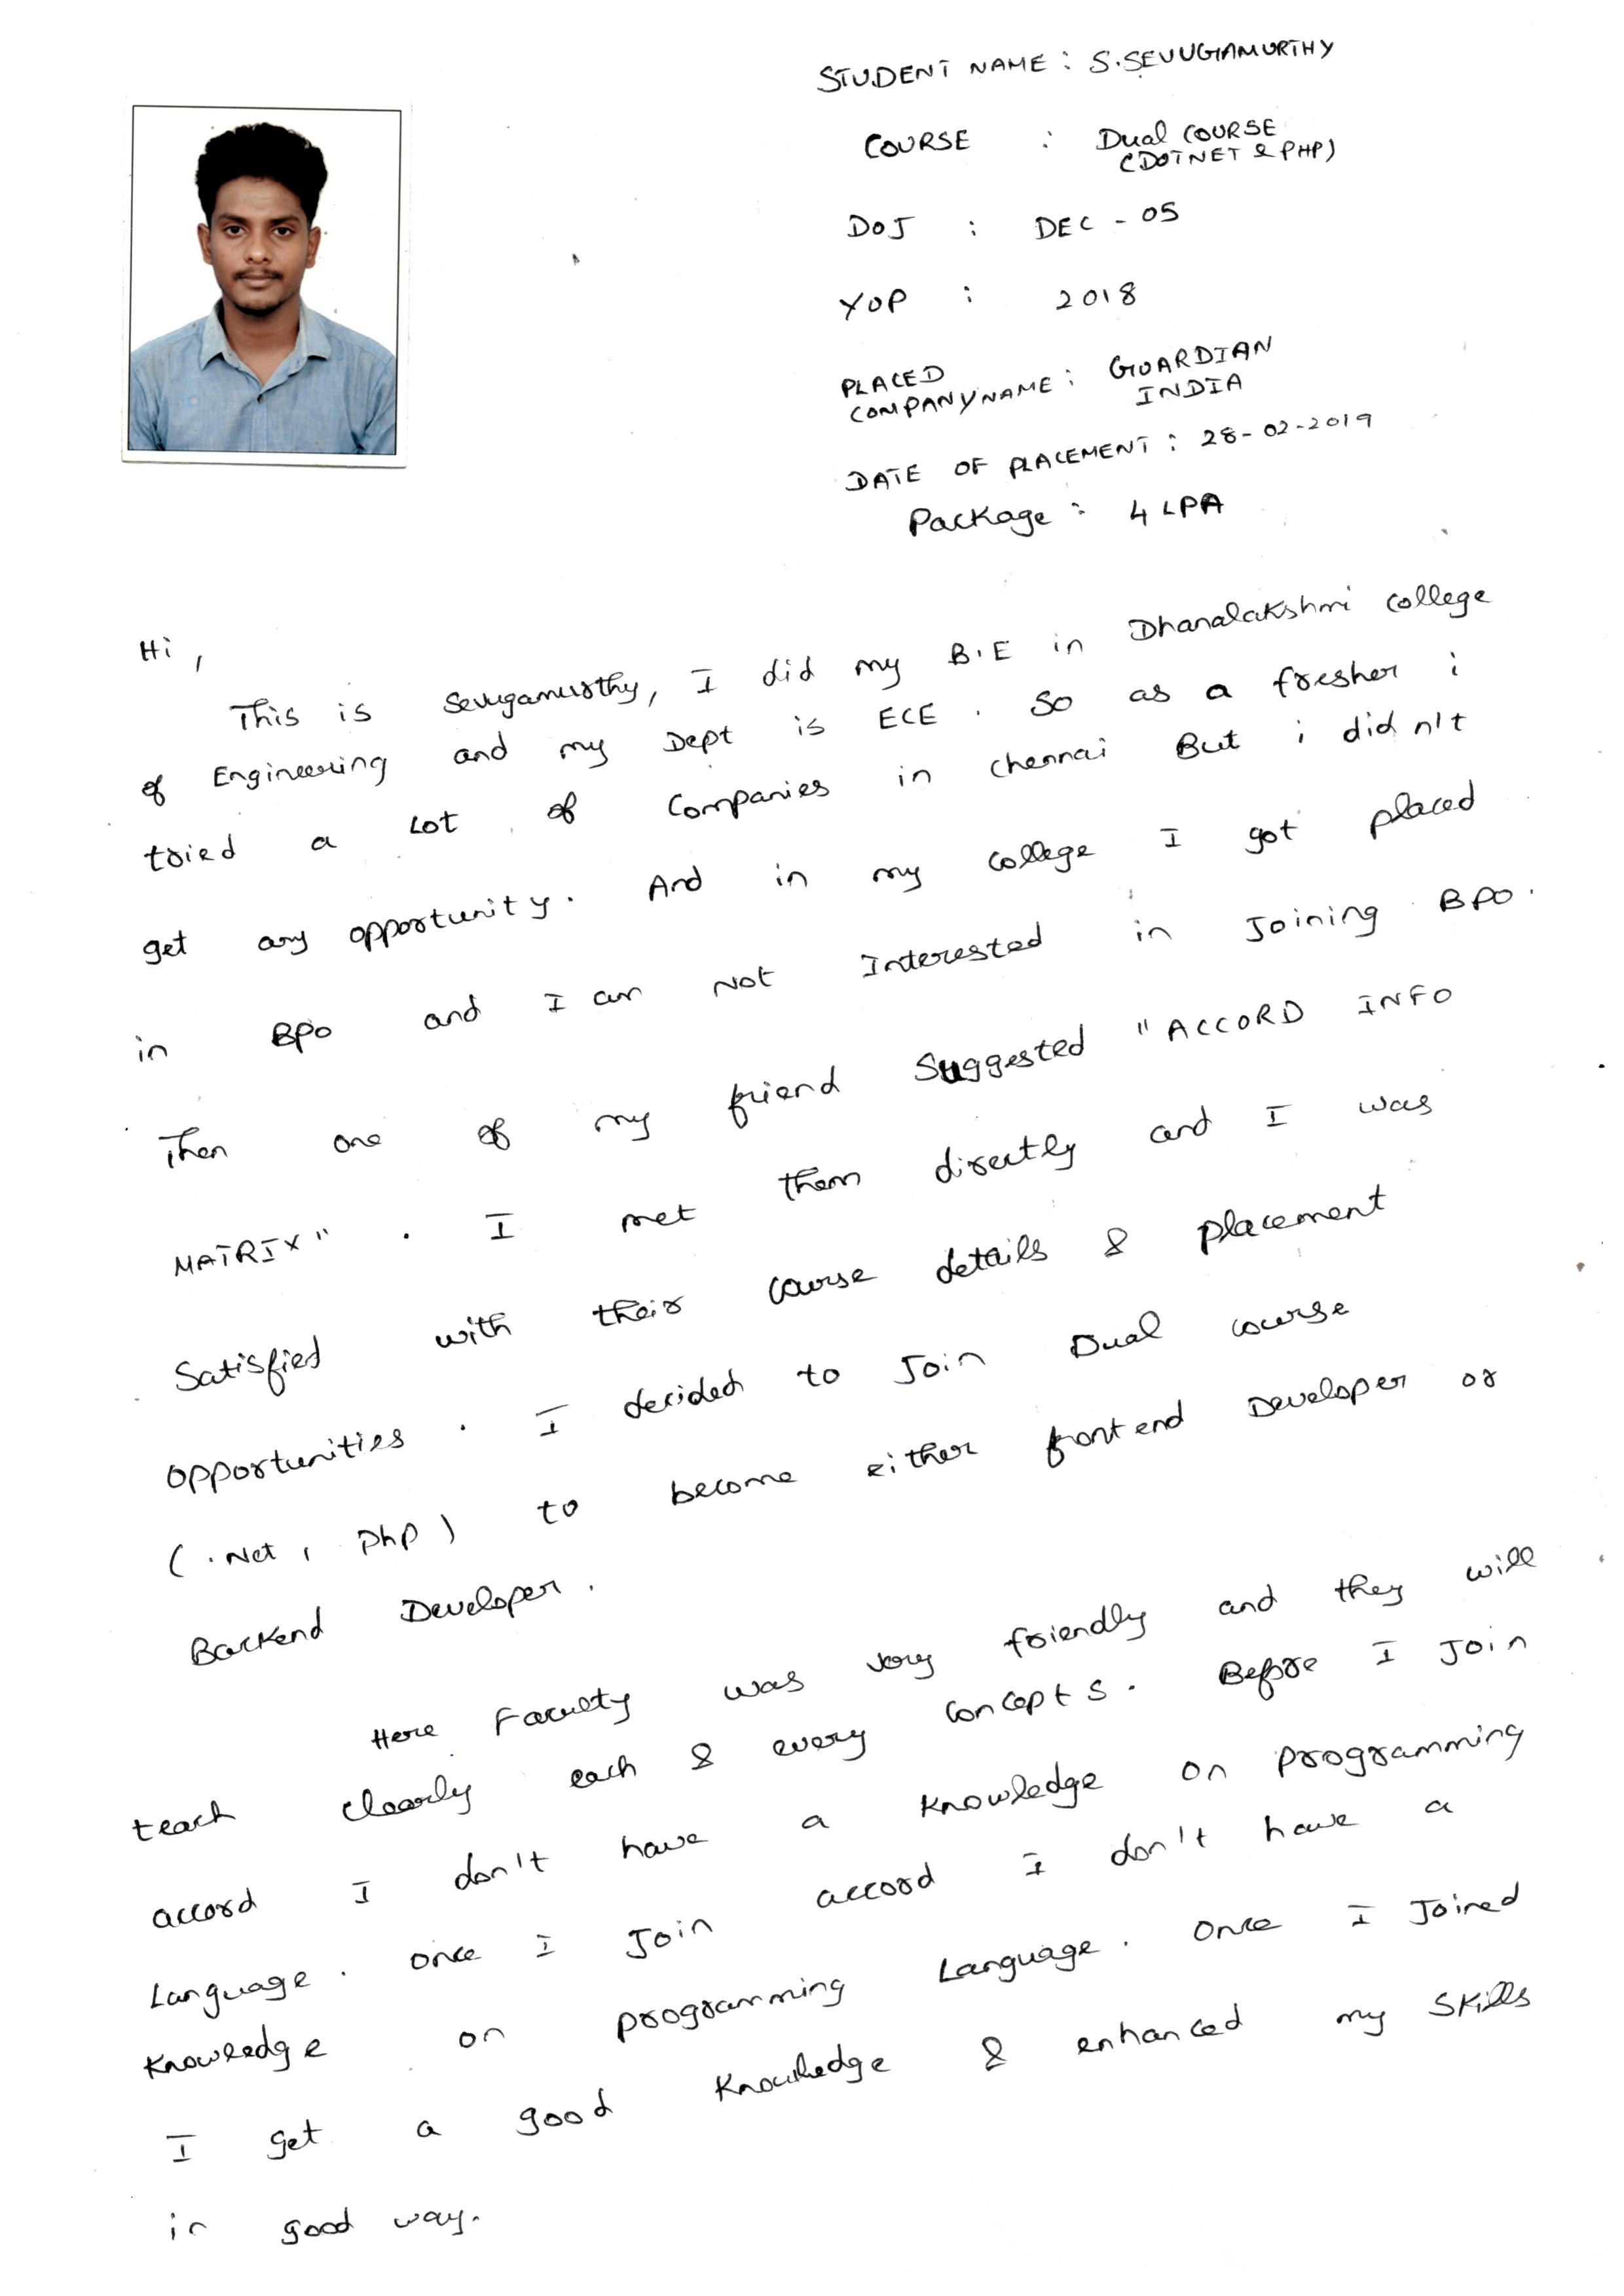 STUDENT NAME : S.SEVUGAMURTHY
COURSE : Dual COURSE
(DOTNET & PHP)
DOJ : DEC - 05
YOP : 2018
PLACED
COMPANYNAME : GUARDIAN
INDIA
DATE OF PLACEMENT : 28-02-2019
Package : 4 LPA
Hi,
This is Sevugamurthy, I did my B.E in Dhanalakshmi college
of Engineering and my Dept is ECE. So as a fresher i
tried a Lot of Companies in chennai But i didn't
get any opportunity. And in my college I got placed
in BPO and I am Not Interested in Joining BPO.
Then one of my friend Suggested "ACCORD INFO
MATRIX". I met them directly and I was
Satisfied with their course details & placement
opportunities. I decided to Join Dual course
(.Net, Php) to become either frontend Developer or
Backend Developer.
Here Faculty was very friendly and they will
teach clearly each & every concepts. Before I Join
accord I don't have a knowledge on programming
Language. once I Join accord I don't have a
knowledge on programming Language. once I Joined
I get a good knowledge & enhanced my Skills
in good way.